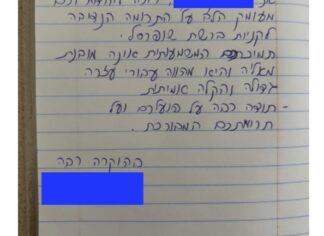 אני
מעומק הלב על התרומה הנדיבה
לקניות ברשת שופרסל.
תמיכתכם המשמעותית אינה מובנת
מאליה והיא מהווה עבורי עזרה
גדולה והקלה אמיתית
תודה רבה על הנועלכם ועל
תרומתכם המבורכת.
בהוקרה רבה